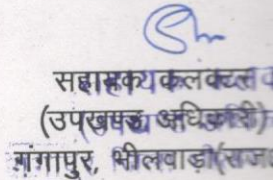 सहायक कलक्टर
(उपखण्ड अधिकारी)
गंगापुर, भीलवाड़ा (राज